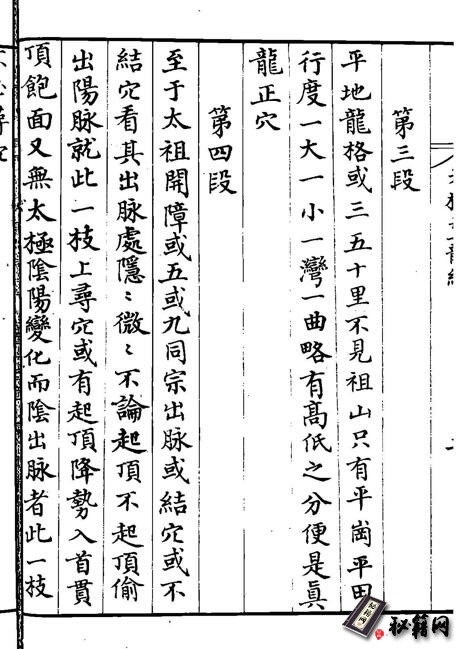 第三段
平地龍格或三五十里不見祖山只有平崗平田
行度一大一小一灣一曲略有高低之分便是眞
龍正穴
第四段
至于太祖開障或五或九同宗出脉或結穴或不
結穴看其出脉處隱〻微〻不論起頂不起頂偷
出陽脉就此一枝上尋穴或有起頂降勢入首貫
頂飽面又無太極陰陽變化而陰出脉者此一枝
秘籍网